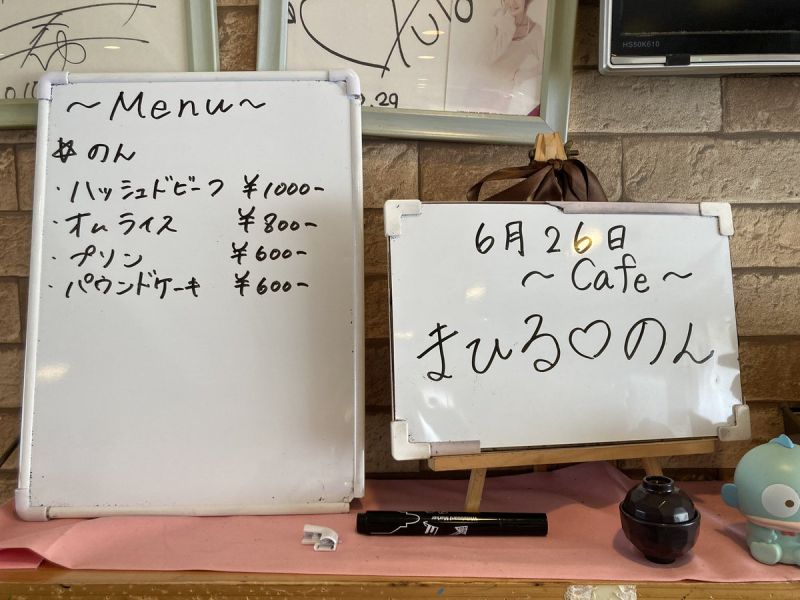 ~Menu~
のん
・ハッシュドビーフ ¥1000-
・オムライス ¥800-
・プリン ¥600-
・パウンドケーキ ¥600-
6月26日
~Cafe~
まひる♡のん
.29
HS50K610
Whiteboard Marker